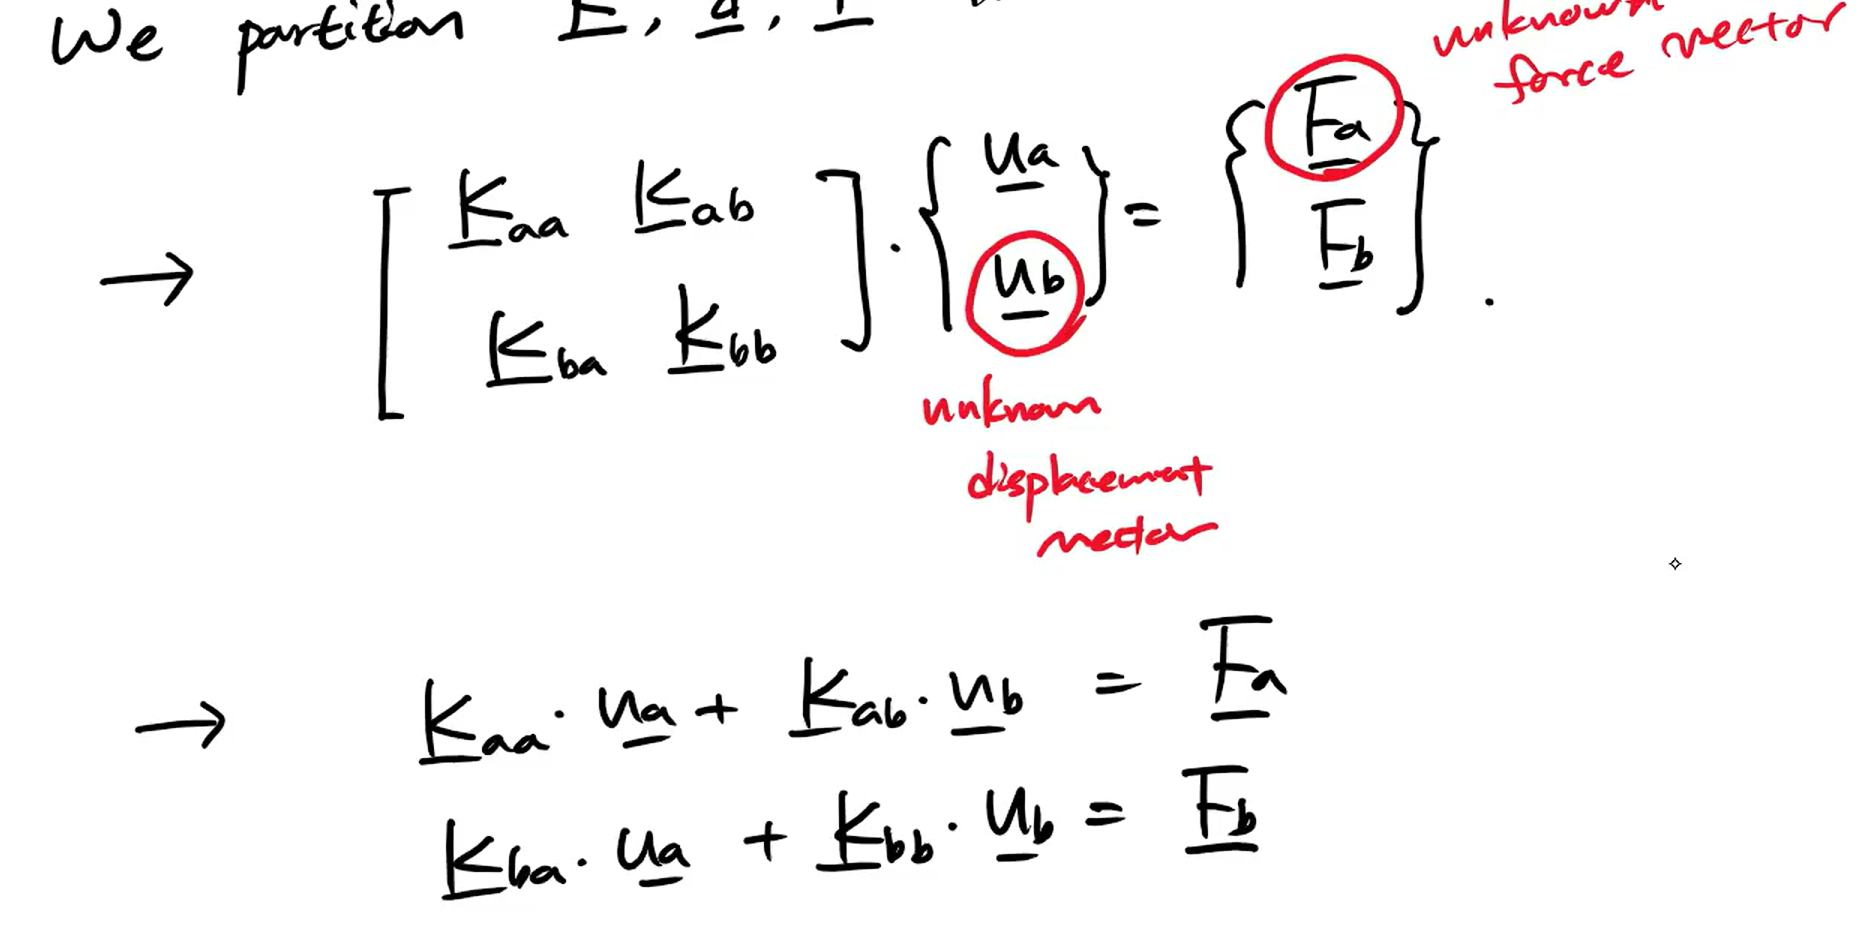 We partition K, u, F
unknown
force vector
→ [ K_aa K_ab ] · { u_a } = { F_a }
[ K_ba K_bb ] { u_b } { F_b } .
unknown
displacement
vector
→ K_aa · u_a + K_ab · u_b = F_a
K_ba · u_a + K_bb · u_b = F_b